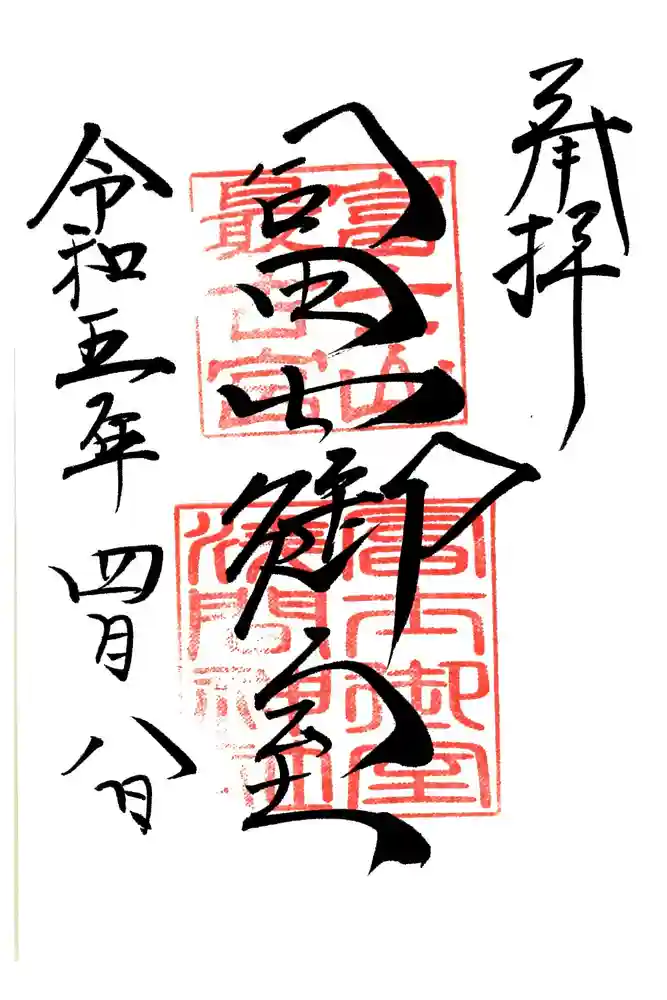 奉拝
冨士御室
富士山
最古宮
冨士御室
浅間神社
令和五年四月八日